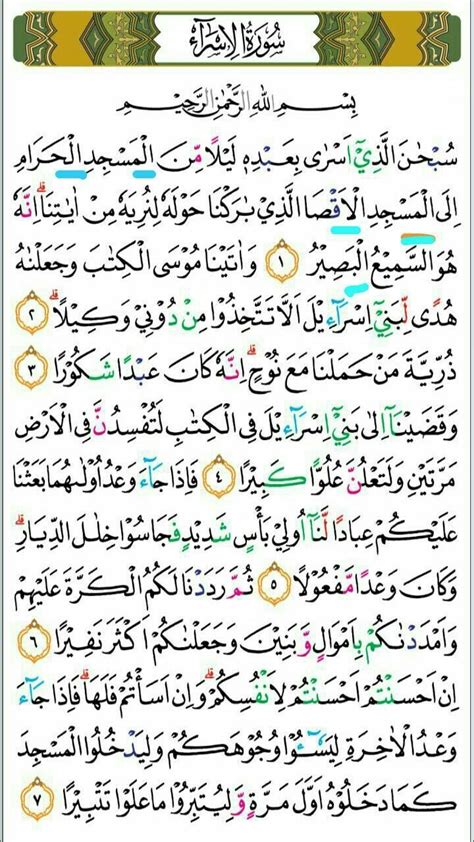 سُورَةُ الْاِسْرَٓاءِ
بِسْمِ اللهِ الرَّحْمٰنِ الرَّحٖيمِ
سُبْحٰنَ الَّذٖٓي اَسْرٰى بِعَبْدِهٖ لَيْلًا مِّنَ الْمَسْجِدِ الْحَرَامِ
اِلَى الْمَسْجِدِ الْاَقْصَا الَّذٖي بٰرَكْنَا حَوْلَهُ لِنُرِيَهُ مِنْ اٰيٰتِنَاۜ اِنَّهُ
هُوَ السَّمٖيعُ الْبَصٖيرُ ﴿١﴾ وَاٰتَيْنَا مُوسَى الْكِتٰبَ وَجَعَلْنٰهُ
هُدًى لِّبَنٖٓي اِسْرَٓاءٖيلَ اَلَّا تَتَّخِذُوا مِنْ دُونٖي وَكٖيلًاۜ ﴿٢﴾
ذُرِّيَّةَ مَنْ حَمَلْنَا مَعَ نُوحٍۜ اِنَّهُ كَانَ عَبْدًا شَكُورًا ﴿٣﴾
وَقَضَيْنَٓا اِلٰى بَنٖٓي اِسْرَٓاءٖيلَ فِي الْكِتٰبِ لَتُفْسِدُنَّ فِي الْاَرْضِ
مَرَّتَيْنِ وَلَتَعْلُنَّ عُلُوًّا كَبٖيرًا ﴿٤﴾ فَاِذَا جَٓاءَ وَعْدُ اُو۫لٰيهُمَا بَعَثْنَا
عَلَيْكُمْ عِبَادًا لَّنَٓا اُو۬لٖي بَأْسٍ شَدٖيدٍ فَجَاسُوا خِلٰلَ الدِّيَارِۜ
وَكَانَ وَعْدًا مَّفْعُولًا ﴿٥﴾ ثُمَّ رَدَدْنَا لَكُمُ الْكَرَّةَ عَلَيْهِمْ
وَاَمْدَدْنٰكُمْ بِاَمْوَالٍ وَّبَنٖينَ وَجَعَلْنٰكُمْ اَكْثَرَ نَفٖيرًا ﴿٦﴾
اِنْ اَحْسَنْتُمْ اَحْسَنْتُمْ لِاَنْفُسِكُمْۜ وَاِنْ اَسَأْتُمْ فَلَهَاۜ فَاِذَا جَٓاءَ
وَعْدُ الْاٰخِرَةِ لِيَسُٓؤُا وُجُوهَكُمْ وَلِيَدْخُلُوا الْمَسْجِدَ
كَمَا دَخَلُوهُ اَوَّلَ مَرَّةٍ وَّلِيُتَبِّرُوا مَا عَلَوْا تَتْبٖيرًا ﴿٧﴾